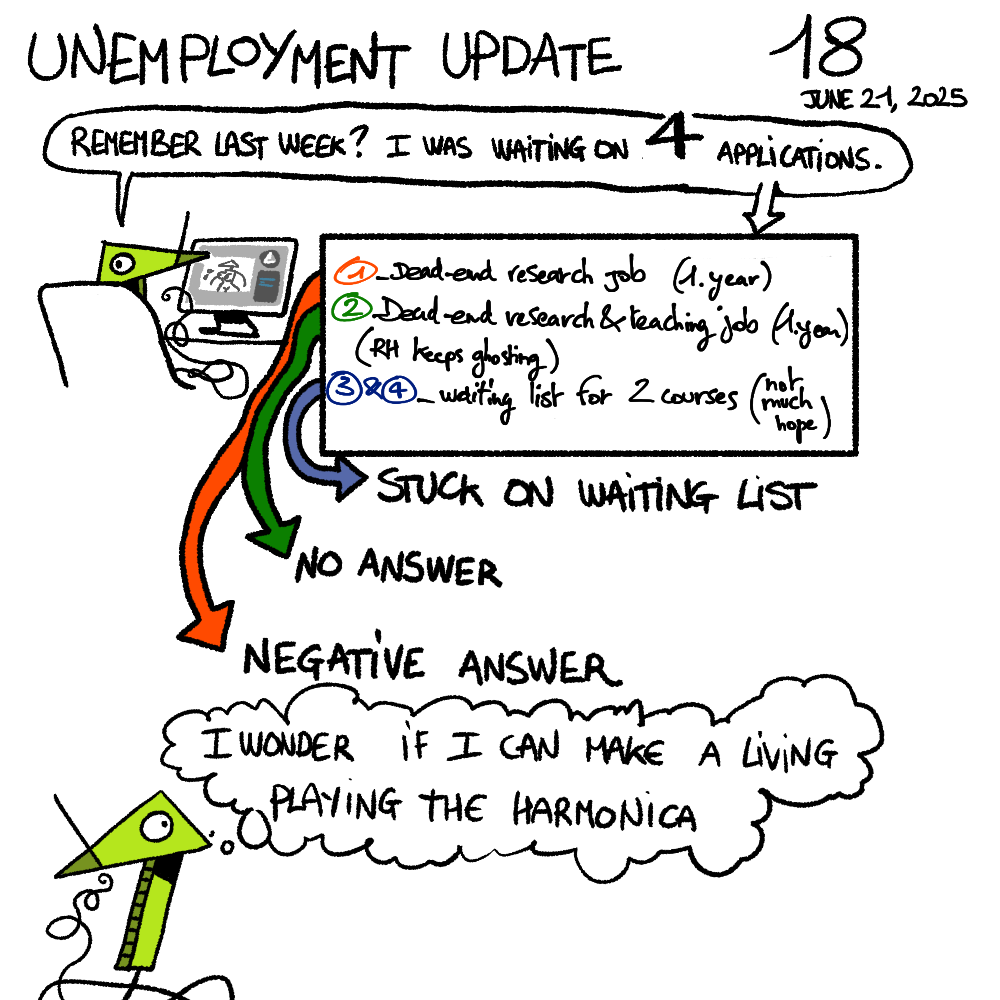 UNEMPLOYMENT UPDATE 18
JUNE 21, 2025
REMEMBER LAST WEEK? I WAS WAITING ON 4 APPLICATIONS.
1_Dead-end research job (1.year)
2_Dead-end research & teaching job (1.year)
(RH keeps ghosting)
3&4_ waiting list for 2 courses (not
much
hope)
STUCK ON WAITING LIST
NO ANSWER
NEGATIVE ANSWER
I WONDER IF I CAN MAKE A LIVING
PLAYING THE HARMONICA